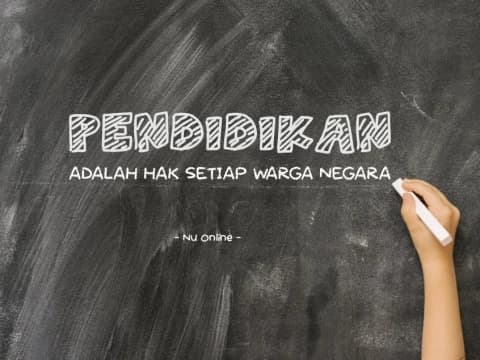 PENDIDIKAN
ADALAH HAK SETIAP WARGA NEGARA
- NU Online -